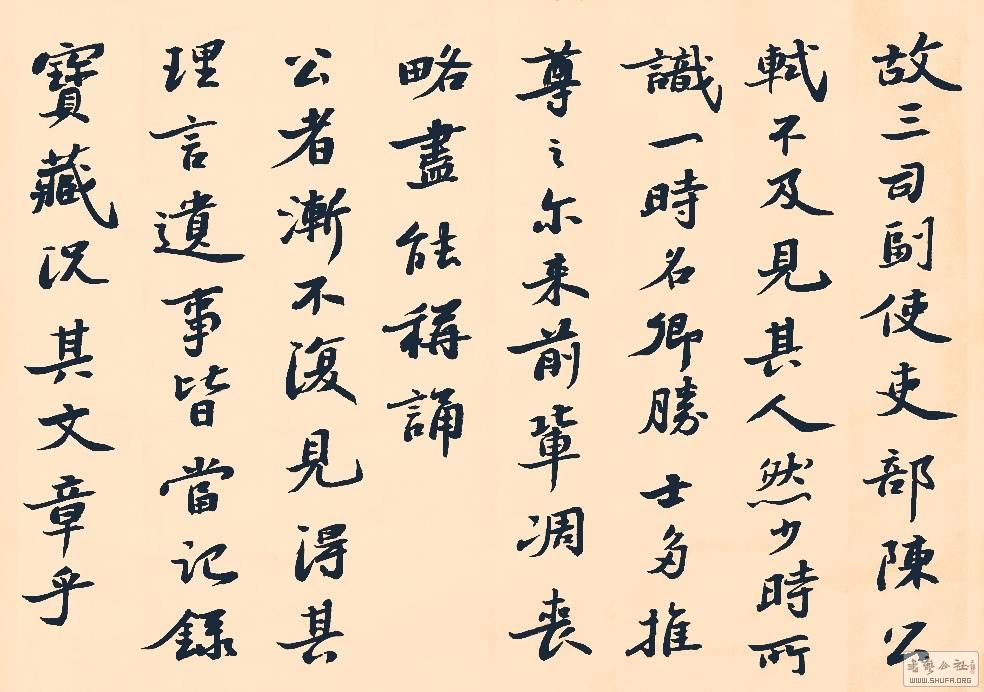 故三司副使吏部陳公
軾不及見其人然少時所
識一時名卿勝士多推
尊之尔来前輩凋喪
略盡能稱誦
公者漸不復見得其
理言遺事皆當記錄
寶藏況其文章乎
書藝公社
WWW.SHUFA.ORG